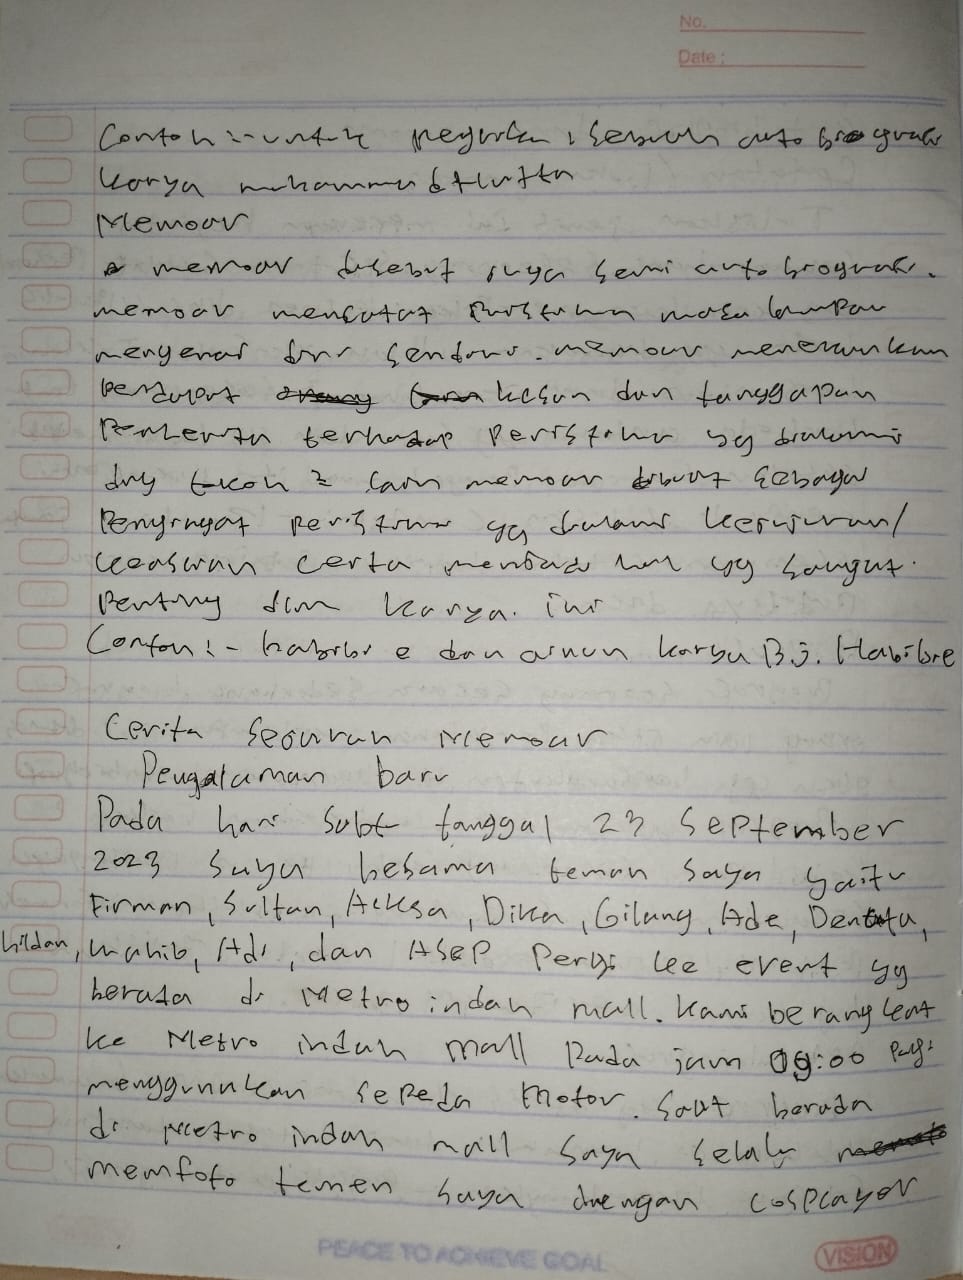 No.
Date :
Contoh :- untuk sebuah auto biografi
karya muhammad
Memoar
memoar disebut juga semi auto biografi.
memoar mencatat Peristiwa masa lampau
mengenai diri sendiri. memoar menekankan
pendapat kesan dan tanggapan
terhadap Peristiwa yg dialami
dng tkoh 2 lain memoar dibuat sebagai
Pengingat peristiwa yg dialami kejujuran/
keaslian cerita menjadi hal yg sangat.
Penting dlm karya. ini
Contoh :- habibi e dan ainun karya B.J. Habibie
Cerita Seouran Memoar
Pengalaman baru
Pada hari Sabt tanggal 23 September
2023 saya besama teman saya yaitu
Firman, Sultan, Acksa, Dika, Gilang, Ade, Denta,
hildan, Wahib, Adi, dan Asep Pergi ke event yg
berada di Metro indah mall. Kami berangkat
ke Metro indah mall Pada jam 09:00 Pagi
menggunakan sepeda motor. Saat berada
di Metro indah mall saya selalu
memfoto temen saya drengan cosplayer
PEACE TO ACHIEVE GOAL
VISION